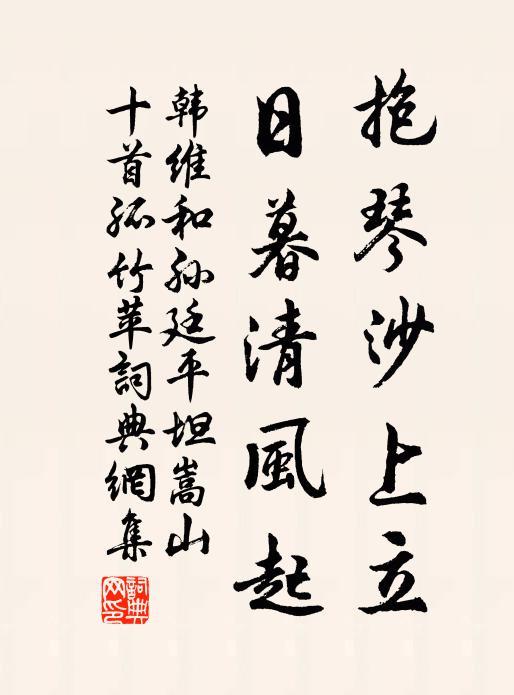 抱琴沙上立
日暮清風起
韩維和孙廷平坦嵩山
十首孤竹苹詞典網集
詞典网印